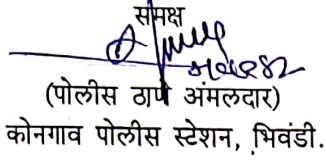 समक्ष
(पोलीस ठाणे अंमलदार)
कोनगाव पोलीस स्टेशन, भिवंडी.